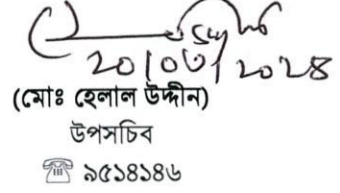 ২০/০৩/২০২৪
(মোঃ হেলাল উদ্দীন)
উপসচিব
☎ ৯৫১৪১৪৬